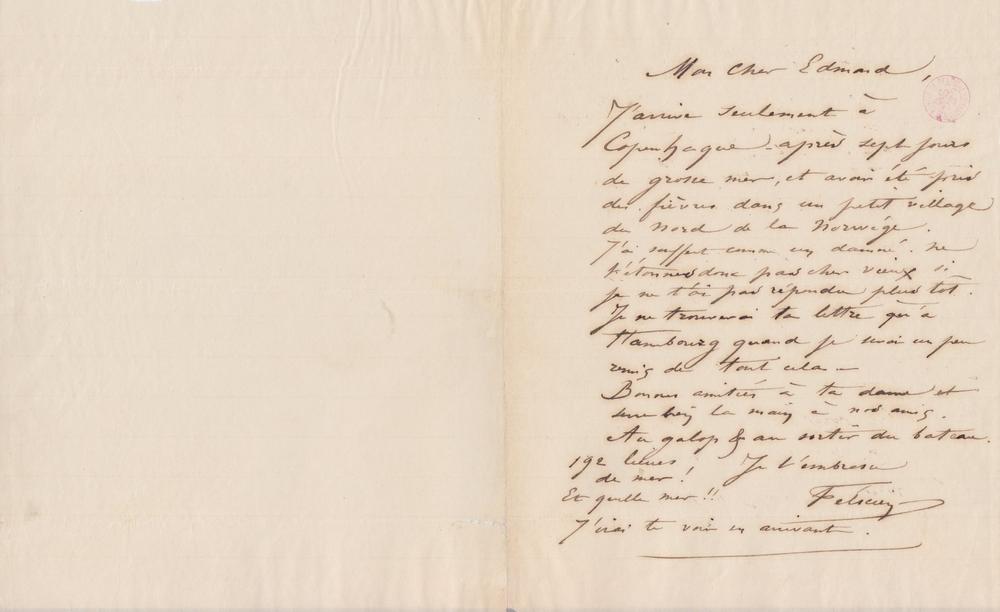 Mon cher Edmond,
J'arrive seulement à
Copenhague - après sept jours
de grosse mer, et avoir été pris
des fièvres dans un petit village
du Nord de la Norwège.
J'ai souffert comme un damné. ne
t'étonnes donc pas cher vieux si
je ne t'ai pas répondu plus tôt.
Je ne trouverai ta lettre qu'à
Hambourg quand je serai un peu
remis de tout cela -
Bonnes amitiés à ta dame et
serre bien la main à nos amis.
Au galop & au sortir du bateau.
192 lieues Je t'embrasse
de mer!
Et quelle mer!! Félicien
J'irai te voir en arrivant.